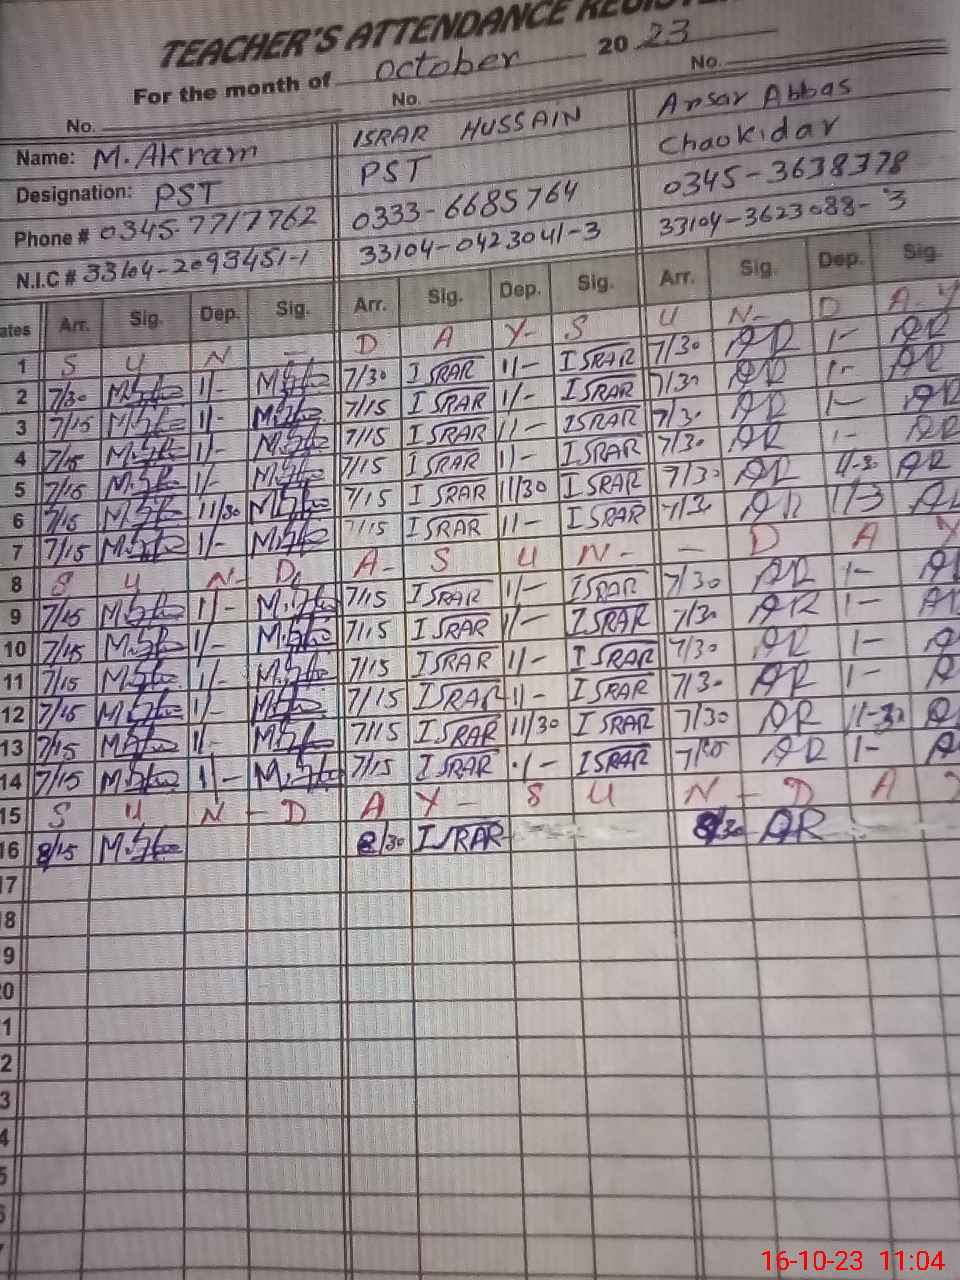 TEACHER'S ATTENDANCE REGISTER
For the month of October 20 23
No. No. No.
Name: M. Akram ISRAR HUSSAIN Ansar Abbas
Designation: PST PST Chaokidar
Phone # 0345-7717762 0333-6685764 0345-3638378
N.I.C # 33104-2093451-1 33104-0423041-3 33104-3623088-3
ates Arr. Sig. Dep. Sig. Arr. Sig. Dep. Sig. Arr. Sig. Dep. Sig.
1 S U N - D A Y- S U N- D A-Y
2 7/30 1/- 7/30 ISRAR 1/- ISRAR 7/30 AR 1- AR
3 7/15 1/- 7/15 ISRAR 1/- ISRAR 7/30 AR 1- AR
4 7/15 1/- 7/15 ISRAR 1/- ISRAR 7/30 AR 1- AR
5 7/15 1/- 7/15 ISRAR 1/- ISRAR 7/30 AR 1- AR
6 7/15 11/30 7/15 ISRAR 11/30 ISRAR 7/30 AR 11-30 AR
7 7/15 1/- 7/15 ISRAR 1/- ISRAR 7/30 AR
8 S U N- D A- S U N- - D A Y
9 7/15 1/- 7/15 ISRAR 1/- ISRAR 7/30 AR 1-
10 7/15 1/- 7/15 ISRAR 1/- ISRAR 7/30 AR 1-
11 7/15 1/- 7/15 ISRAR 1/- ISRAR 7/30 AR 1-
12 7/15 1/- 7/15 ISRAR 1/- ISRAR 7/30 AR 1-
13 7/15 1/- 7/15 ISRAR 11/30 ISRAR 7/30 AR 11-30
14 7/15 1/- 7/15 ISRAR 1/- ISRAR AR 1-
15 S U N - D A Y- S U N - D A
16 8/15 8/30 ISRAR 8/30 AR
17
18
9
20
1
2
3
4
5
16-10-23 11:04